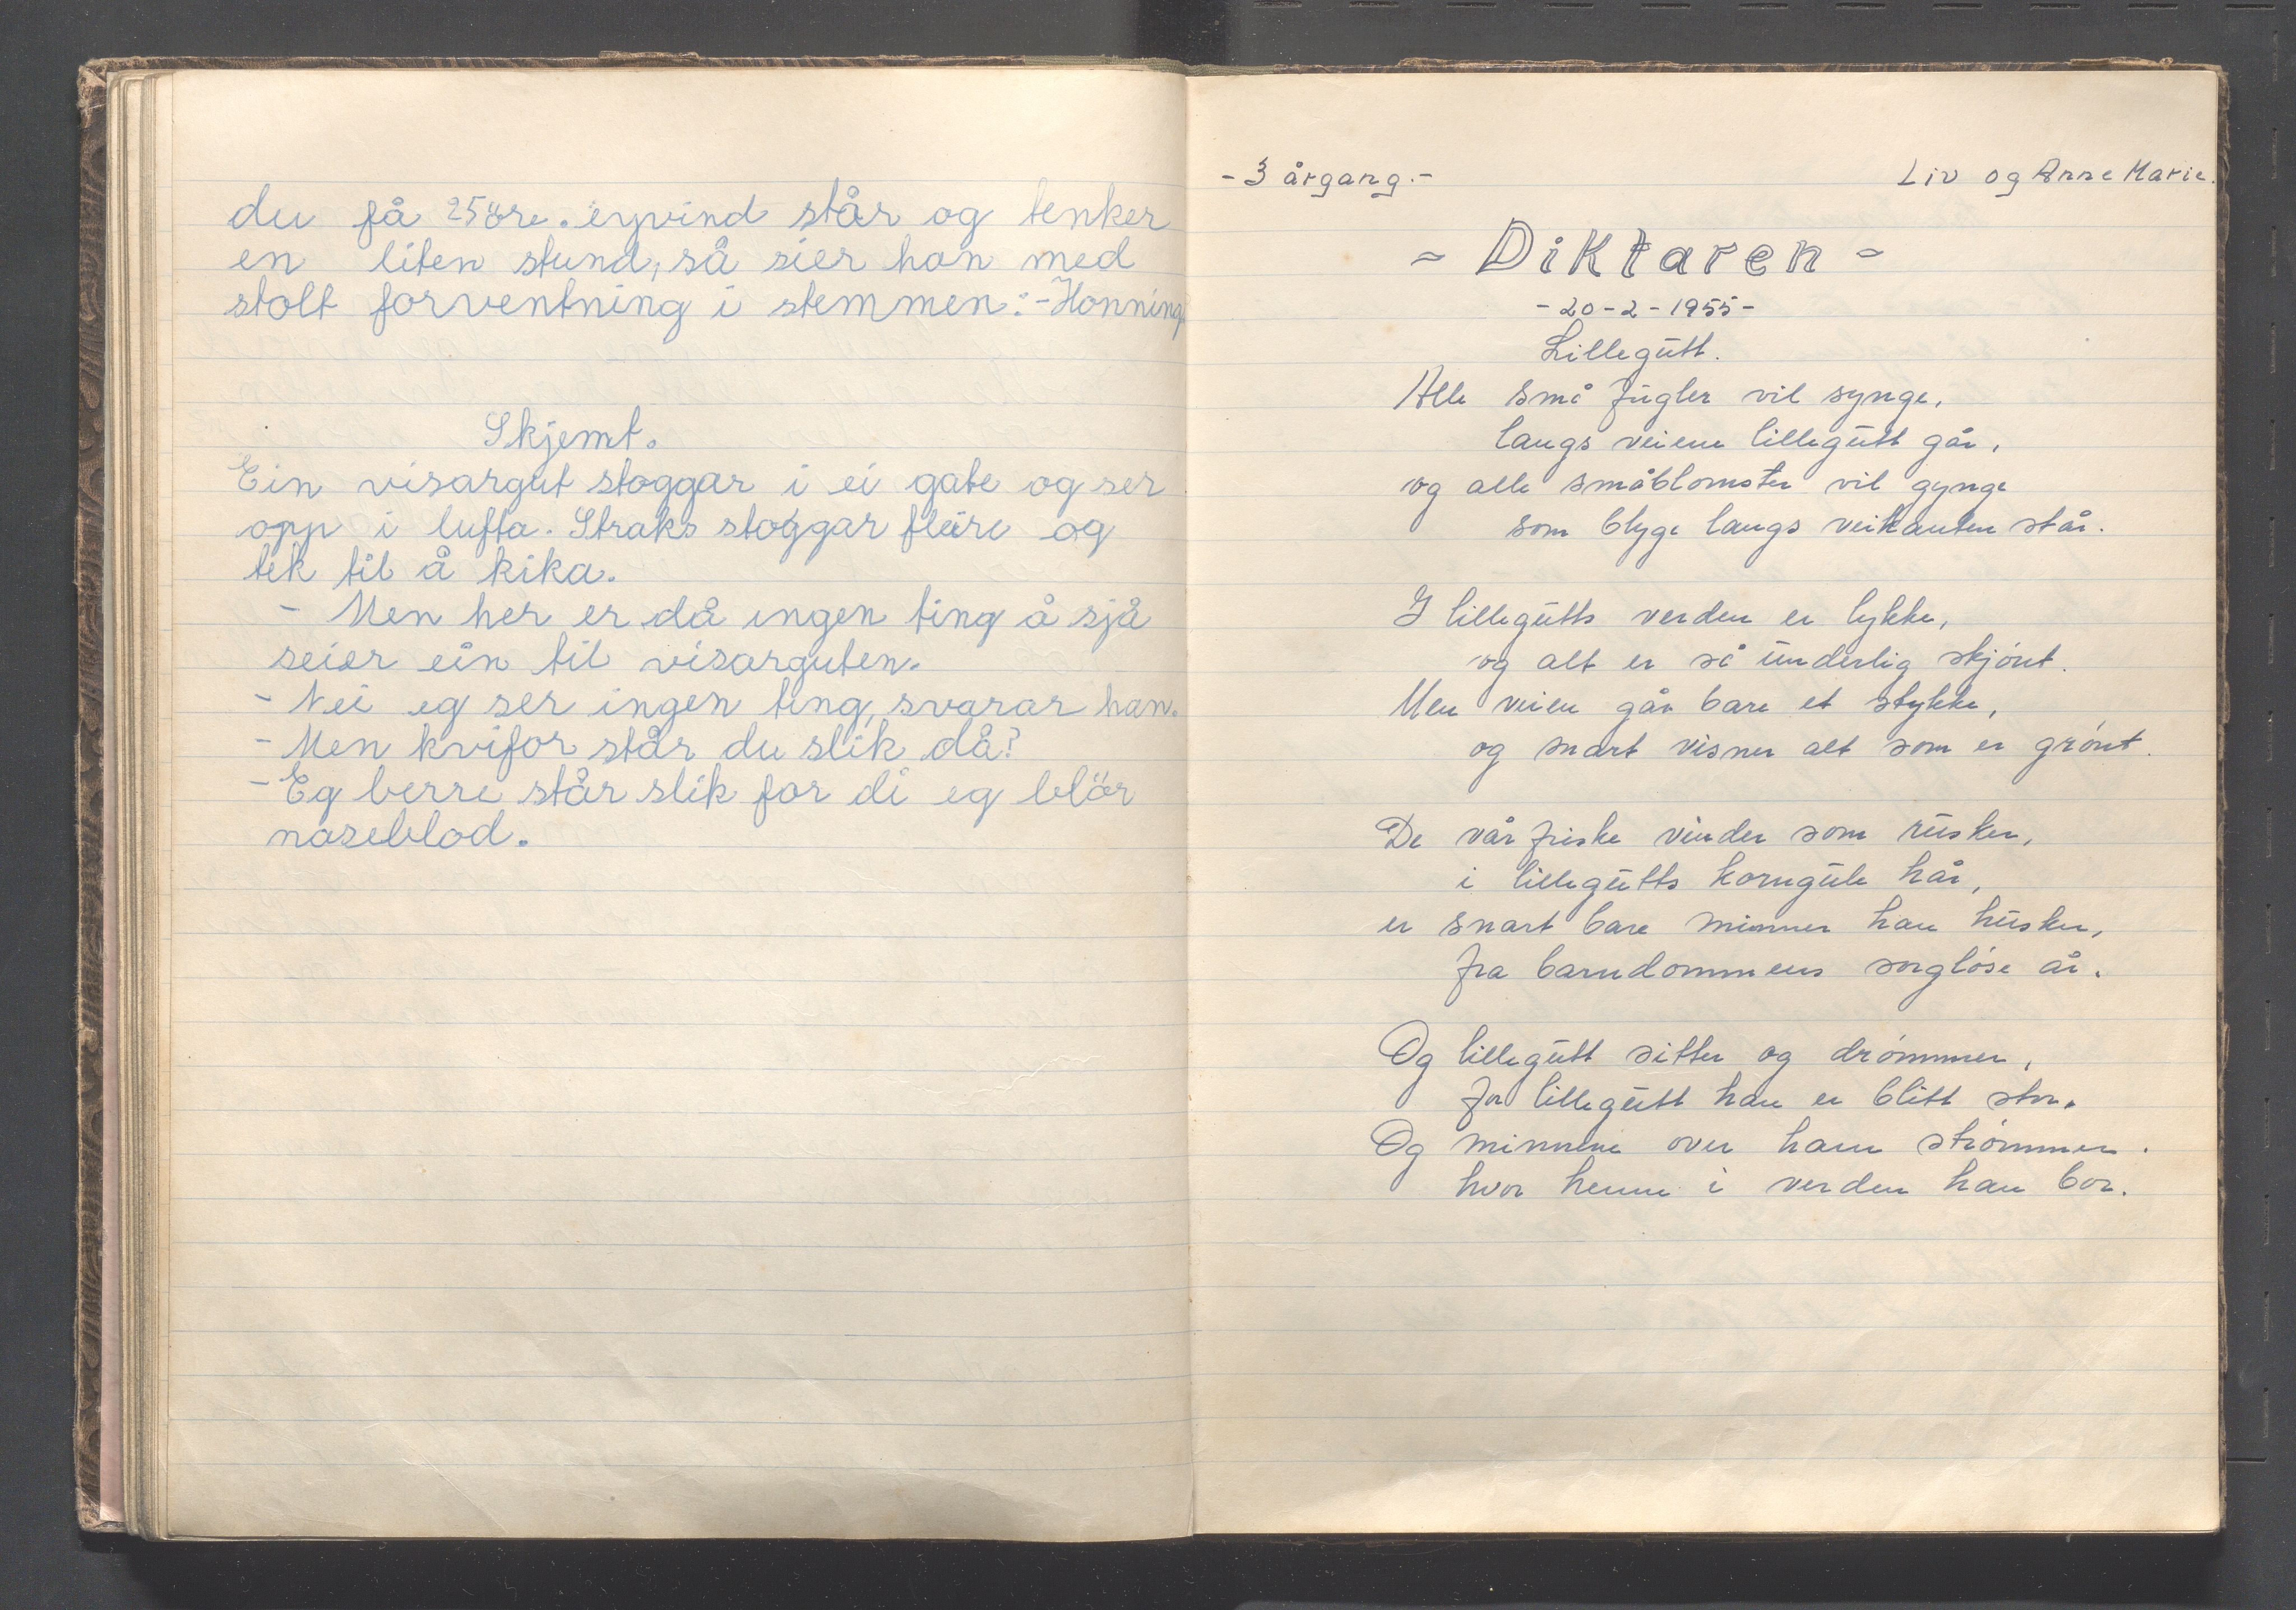 du få 25 öre. eyvind står og tenker
en liten stund, så sier han med
stolt forventning i stemmen: - Honning
Skjemt.
Ein visargut stoggar i ei gate og ser
opp i lufta. Straks stoggar fleire og
tek til å kika.
- Men her er då ingen ting å sjå
seier ein til visarguten.
- Nei eg ser ingen ting, svarar han.
- Men kvifor står du slik då?
- Eg berre står slik for di eg blör
naseblod.
- 3 årgang. -
Liv og Anne Marie.
- Diktaren -
- 20 - 2 - 1955 -
Lillegutt.
Alle små fugler vil synge,
langs veiene lillegutt går,
og alle småblomster vil gynge
som blyge langs veikanten står.
I lillegutts verden er lykke,
og alt er så underlig skjónt.
Men veien går bare et stykke,
og snart visner alt som er grónt.
De vårfriske vinder som rusker,
i lillegutts korngule hår,
er snart bare minner han husker,
fra barndommens sorglóse år.
Og lillegutt sitter og drómmer,
for lillegutt han er blitt stor.
Og minnene over ham strómmer.
hvor henne i verden han bor.